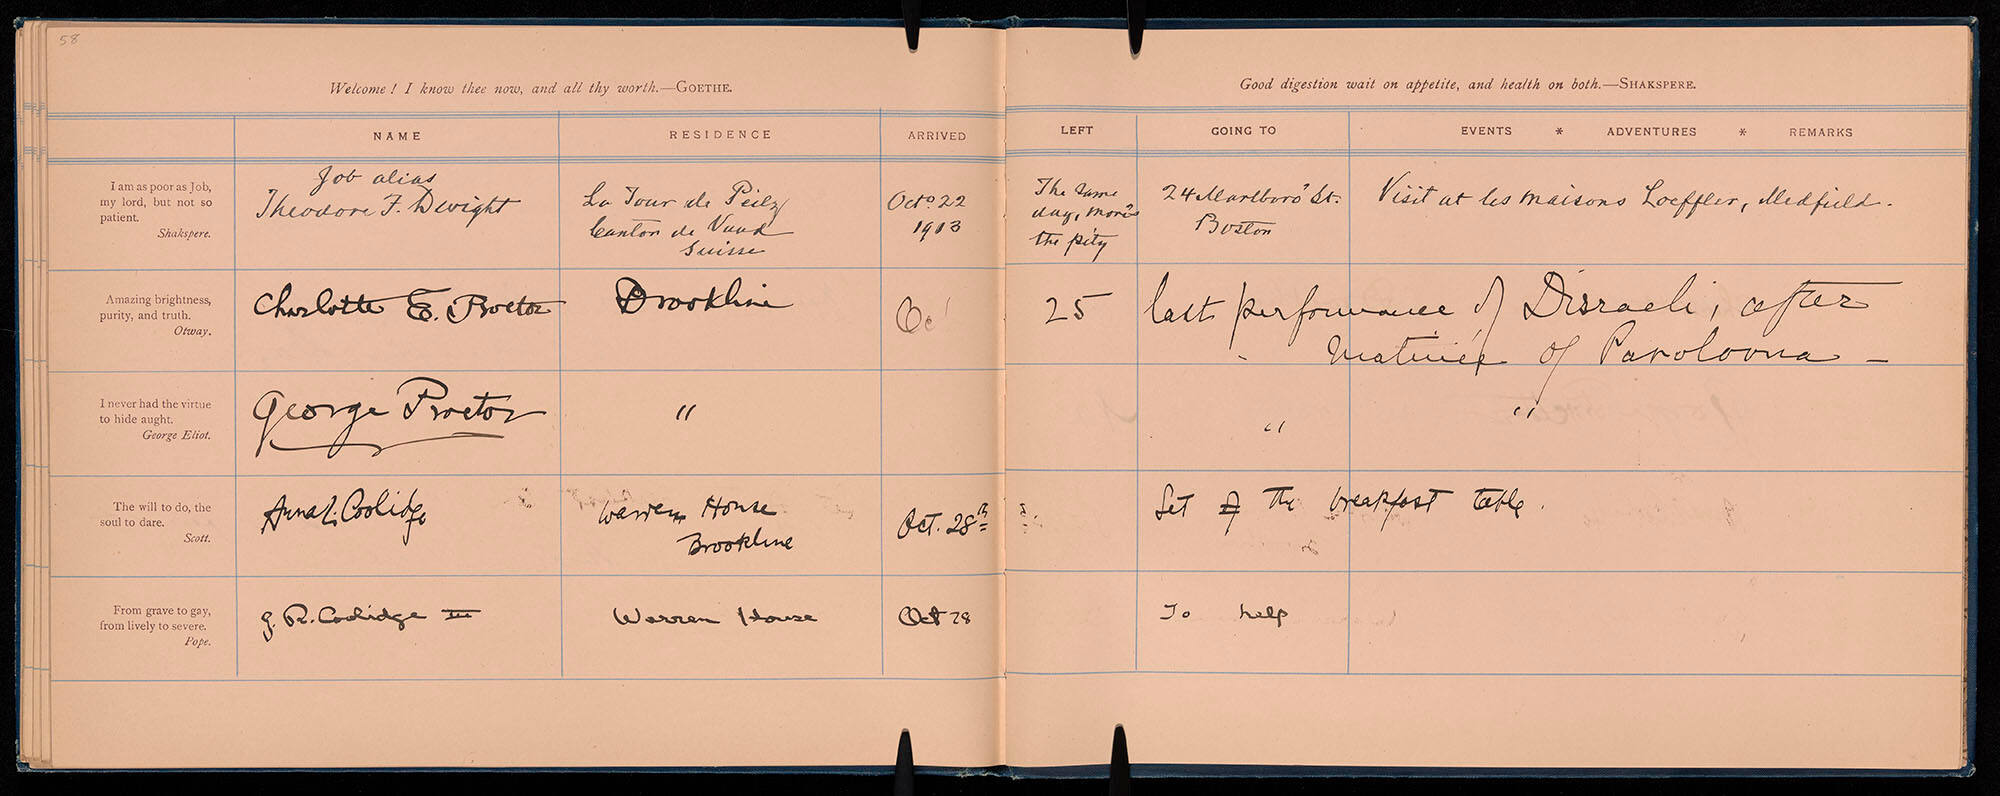 58
Welcome! I know thee now, and all thy worth.—GOETHE.
NAME
RESIDENCE
ARRIVED
I am as poor as Job,
my lord, but not so
patient.
Shakspere.
Job alias
Theodore F. Dwight
La Tour de Peilz
Canton de Vaud
Suisse
Octo. 22
1913
Amazing brightness,
purity, and truth.
Otway.
Charlotte E. Proctor
Brookline
Oc
I never had the virtue
to hide aught.
George Eliot.
George Proctor
"
The will to do, the
soul to dare.
Scott.
Anna L. Coolidge
Warren House
Brookline
Oct. 28th
From grave to gay,
from lively to severe.
Pope.
J. R. Coolidge III
Warren House
Oct 28
Good digestion wait on appetite, and health on both.—SHAKSPERE.
LEFT
GOING TO
EVENTS * ADVENTURES * REMARKS
The same
day, more's
the pity
24 Marlboro' St.
Boston
Visit at les maisons Loeffler, Medfield.
25
last performance of Disraeli, after
matinée of Pavolovna —
" "
Set of the breakfast table.
To help